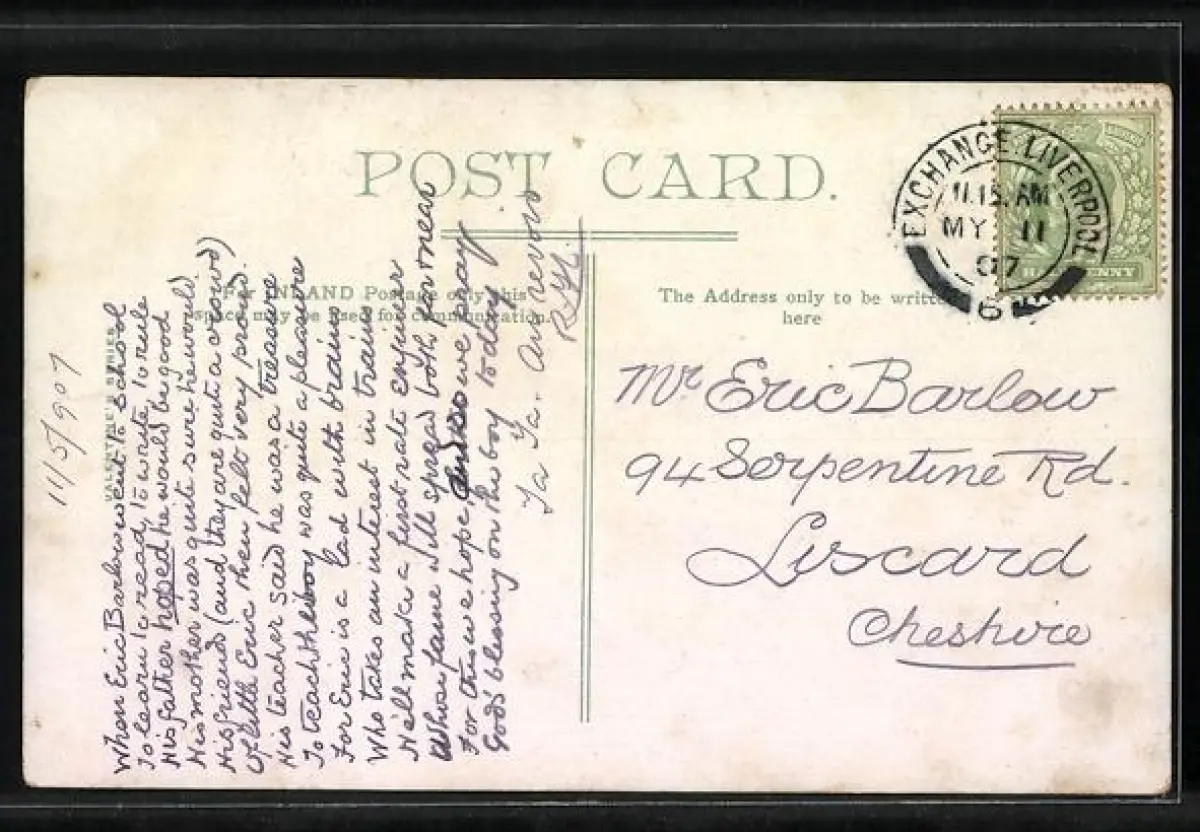 POST CARD.
For INLAND Postage only this
space may be used for communication.
The Address only to be written
here
VALENTINE'S SERIES
EXCHANGE. LIVERPOOL
11.15. AM
MY 11
07
6
HALFPENNY
11/5/907
When Eric Barlow went to school
To learn to read, to write, to rule
His father hoped he would be good
His mother was quite sure he would.
His friends (and they are quite a crowd)
Of little Eric then felt very proud.
His teacher said he was a treasure
To teach the boy was quite a pleasure
For Eric is a lad with brains
Who takes an interest in trains
He'll make a first rate enjinier
Whose fame will spread both far & near
For this we hope, and so we pray
God's blessing on the boy to day
Ta Ta. Au revoir
Mr Eric Barlow
94 Serpentine Rd.
Liscard
Cheshire